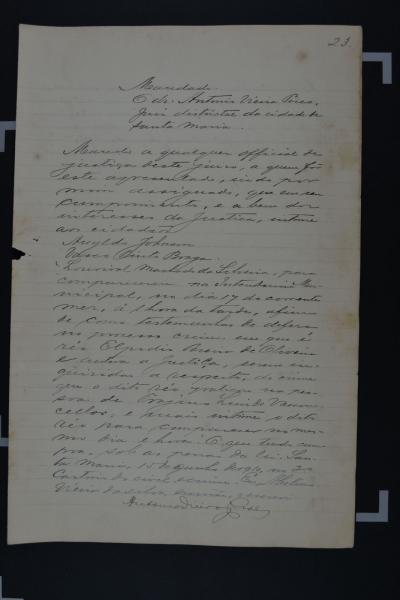 23.
Mandado
O dr. Antonio Vieira Pires,
Juiz districtal da cidade de
Santa Maria.
Mando a qualquer official de
justiça deste juizo, a quem fôr
este apresentado, indo por
mim assignado, que em seu
cumprimento, e a bem dos
interesses da Justiça, intime
aos cidadãos
Johnson
Vasco Braga
Lourival Machado da Silveira, para
comparecerem na Intendencia Mu-
nicipal, no dia 17 do corrente
mez, á 1 hora da tarde, afim
de como testemunhas de defeza
no processo crime em que é
réo Elpidio de Oliveira
e autora a Justiça, serem in-
queridas a respeito do crime
que o dito réo praticou na pes-
soa de Vascon-
cellos; e mais intime o dito
réo para comparecer no mes-
mo dia e hora. O que tendo cum-
pra, sob as penas da lei. San-
ta Maria, 15 de Junho de
Cartorio do civel e crime. Eu,
Vieira da Silva, escrivão, escrevi